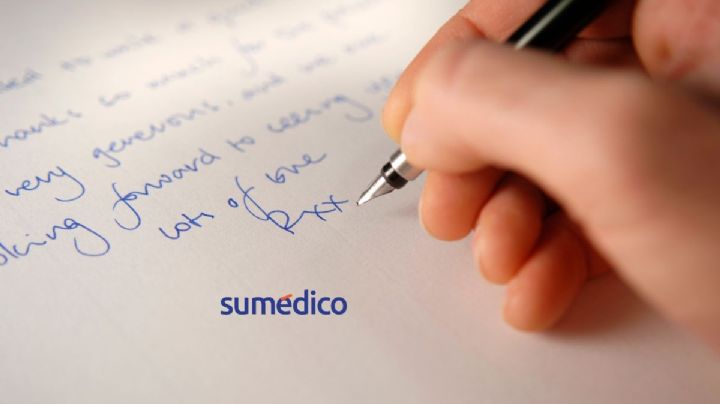 to write a
hanks so much for the
very generous, and we are
oking forward to seeing
lots of love
Rxx
sumédico